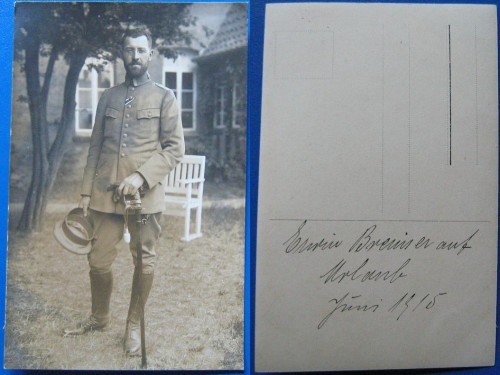 Erwin Bremser auf
Urlaub
Juni 1915